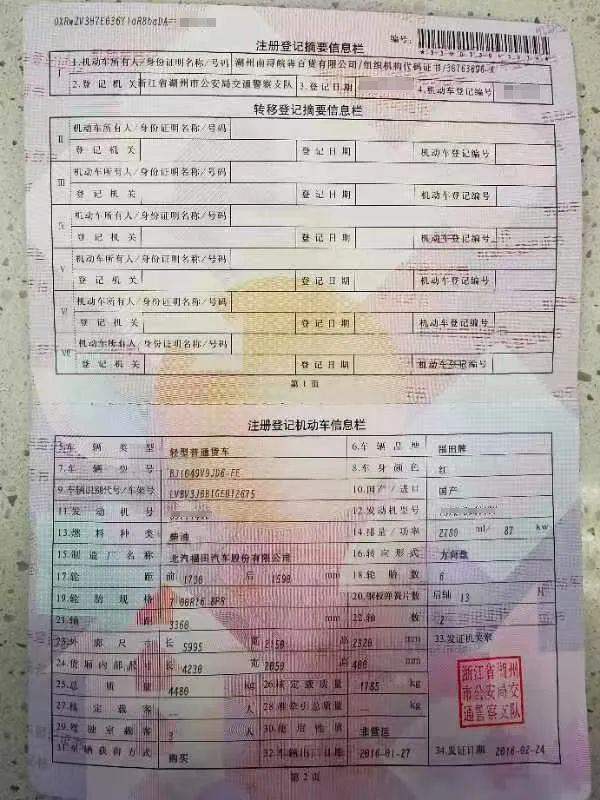 注册登记摘要信息栏
编号:
I
1.机动车所有人/身份证明名称/号码 湖州南浔皖海百货有限公司/组织机构代码证书/
2.登记机关 浙江省湖州市公安局交通警察支队 3.登记日期 4.机动车登记编号
转移登记摘要信息栏
II 机动车所有人/身份证明名称/号码
登记机关 登记日期 机动车登记编号
III 机动车所有人/身份证明名称/号码
登记机关 登记日期 机动车登记编号
IV 机动车所有人/身份证明名称/号码
登记机关 登记日期 机动车登记编号
V 机动车所有人/身份证明名称/号码
登记机关 登记日期 机动车登记编号
VI 机动车所有人/身份证明名称/号码
登记机关 登记日期 机动车登记编号
VII 机动车所有人/身份证明名称/号码
登记机关 登记日期 机动车登记编号
第1页
注册登记机动车信息栏
5.车辆类型 轻型普通货车 6.车辆品牌 福田牌
7.车辆型号 BJ1049V9JD6-FE 8.车身颜色 红
9.车辆识别代号/车架号 10.国产/进口 国产
11.发动机号 12.发动机型号
13.燃料种类 柴油 14.排量/功率 2780 ml/ 87 kw
15.制造厂名称 北汽福田汽车股份有限公司 16.转向形式 方向盘
17.轮距 前 1730 后 1590 mm 18.轮胎数 6
19.轮胎规格 7.00R16 8PR 20.钢板弹簧片数 后轴 13 片
21.轴距 3360 mm 22.轴数 2
23.外廓尺寸 长 5995 宽 2150 高 2320 mm 33.发证机关章
24.货厢内部尺寸 长 4230 宽 2050 高 400 mm
25.总质量 4480 kg 26.核定载质量 1785 kg
27.核定载客 — 28.准牵引总质量 — kg
29.驾驶室载客 3 人 30.使用性质 非营运
31.车辆获得方式 购买 32.车辆出厂日期 2016-01-27 34.发证日期 2016-02-24
浙江省湖州
市公安局交
通警察支队
第2页